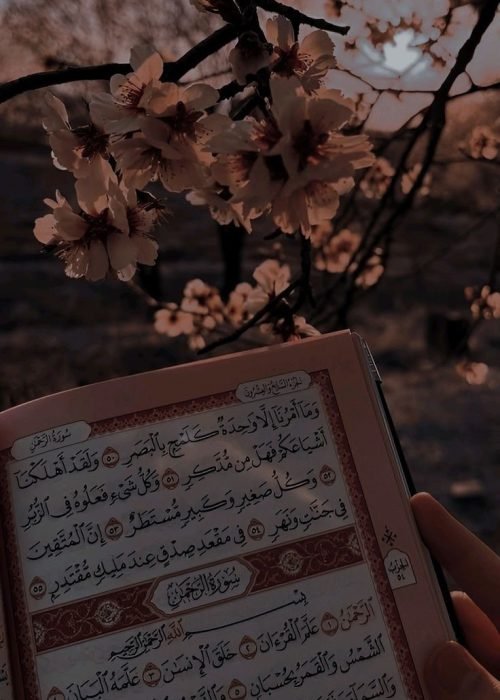 سُورَةُ الرَّحْمٰن
الجُزءُ السَّابِعُ وَالعِشْرُونَ
وَمَآ أَمْرُنَآ إِلَّا وَٰحِدَةٌ كَلَمْحٍۭ بِٱلْبَصَرِ ٥٠ وَلَقَدْ أَهْلَكْنَآ
أَشْيَاعَكُمْ فَهَلْ مِن مُّدَّكِرٍ ٥١ وَكُلُّ شَىْءٍ فَعَلُوهُ فِى ٱلزُّبُرِ
٥٢ وَكُلُّ صَغِيرٍ وَكَبِيرٍ مُّسْتَطَرٌ ٥٣ إِنَّ ٱلْمُتَّقِينَ
فِى جَنَّٰتٍ وَنَهَرٍ ٥٤ فِى مَقْعَدِ صِدْقٍ عِندَ مَلِيكٍ مُّقْتَدِرٍۭ ٥٥
سُورَةُ الرَّحْمٰن
بِسْمِ ٱللَّهِ ٱلرَّحْمَٰنِ ٱلرَّحِيمِ
ٱلرَّحْمَٰنُ ١ عَلَّمَ ٱلْقُرْءَانَ ٢ خَلَقَ ٱلْإِنسَٰنَ ٣ عَلَّمَهُ ٱلْبَيَانَ
ٱلشَّمْسُ وَٱلْقَمَرُ بِحُسْبَانٍ ٥
وَٱلسَّمَآءَ
الحِزْبُ
٥٤